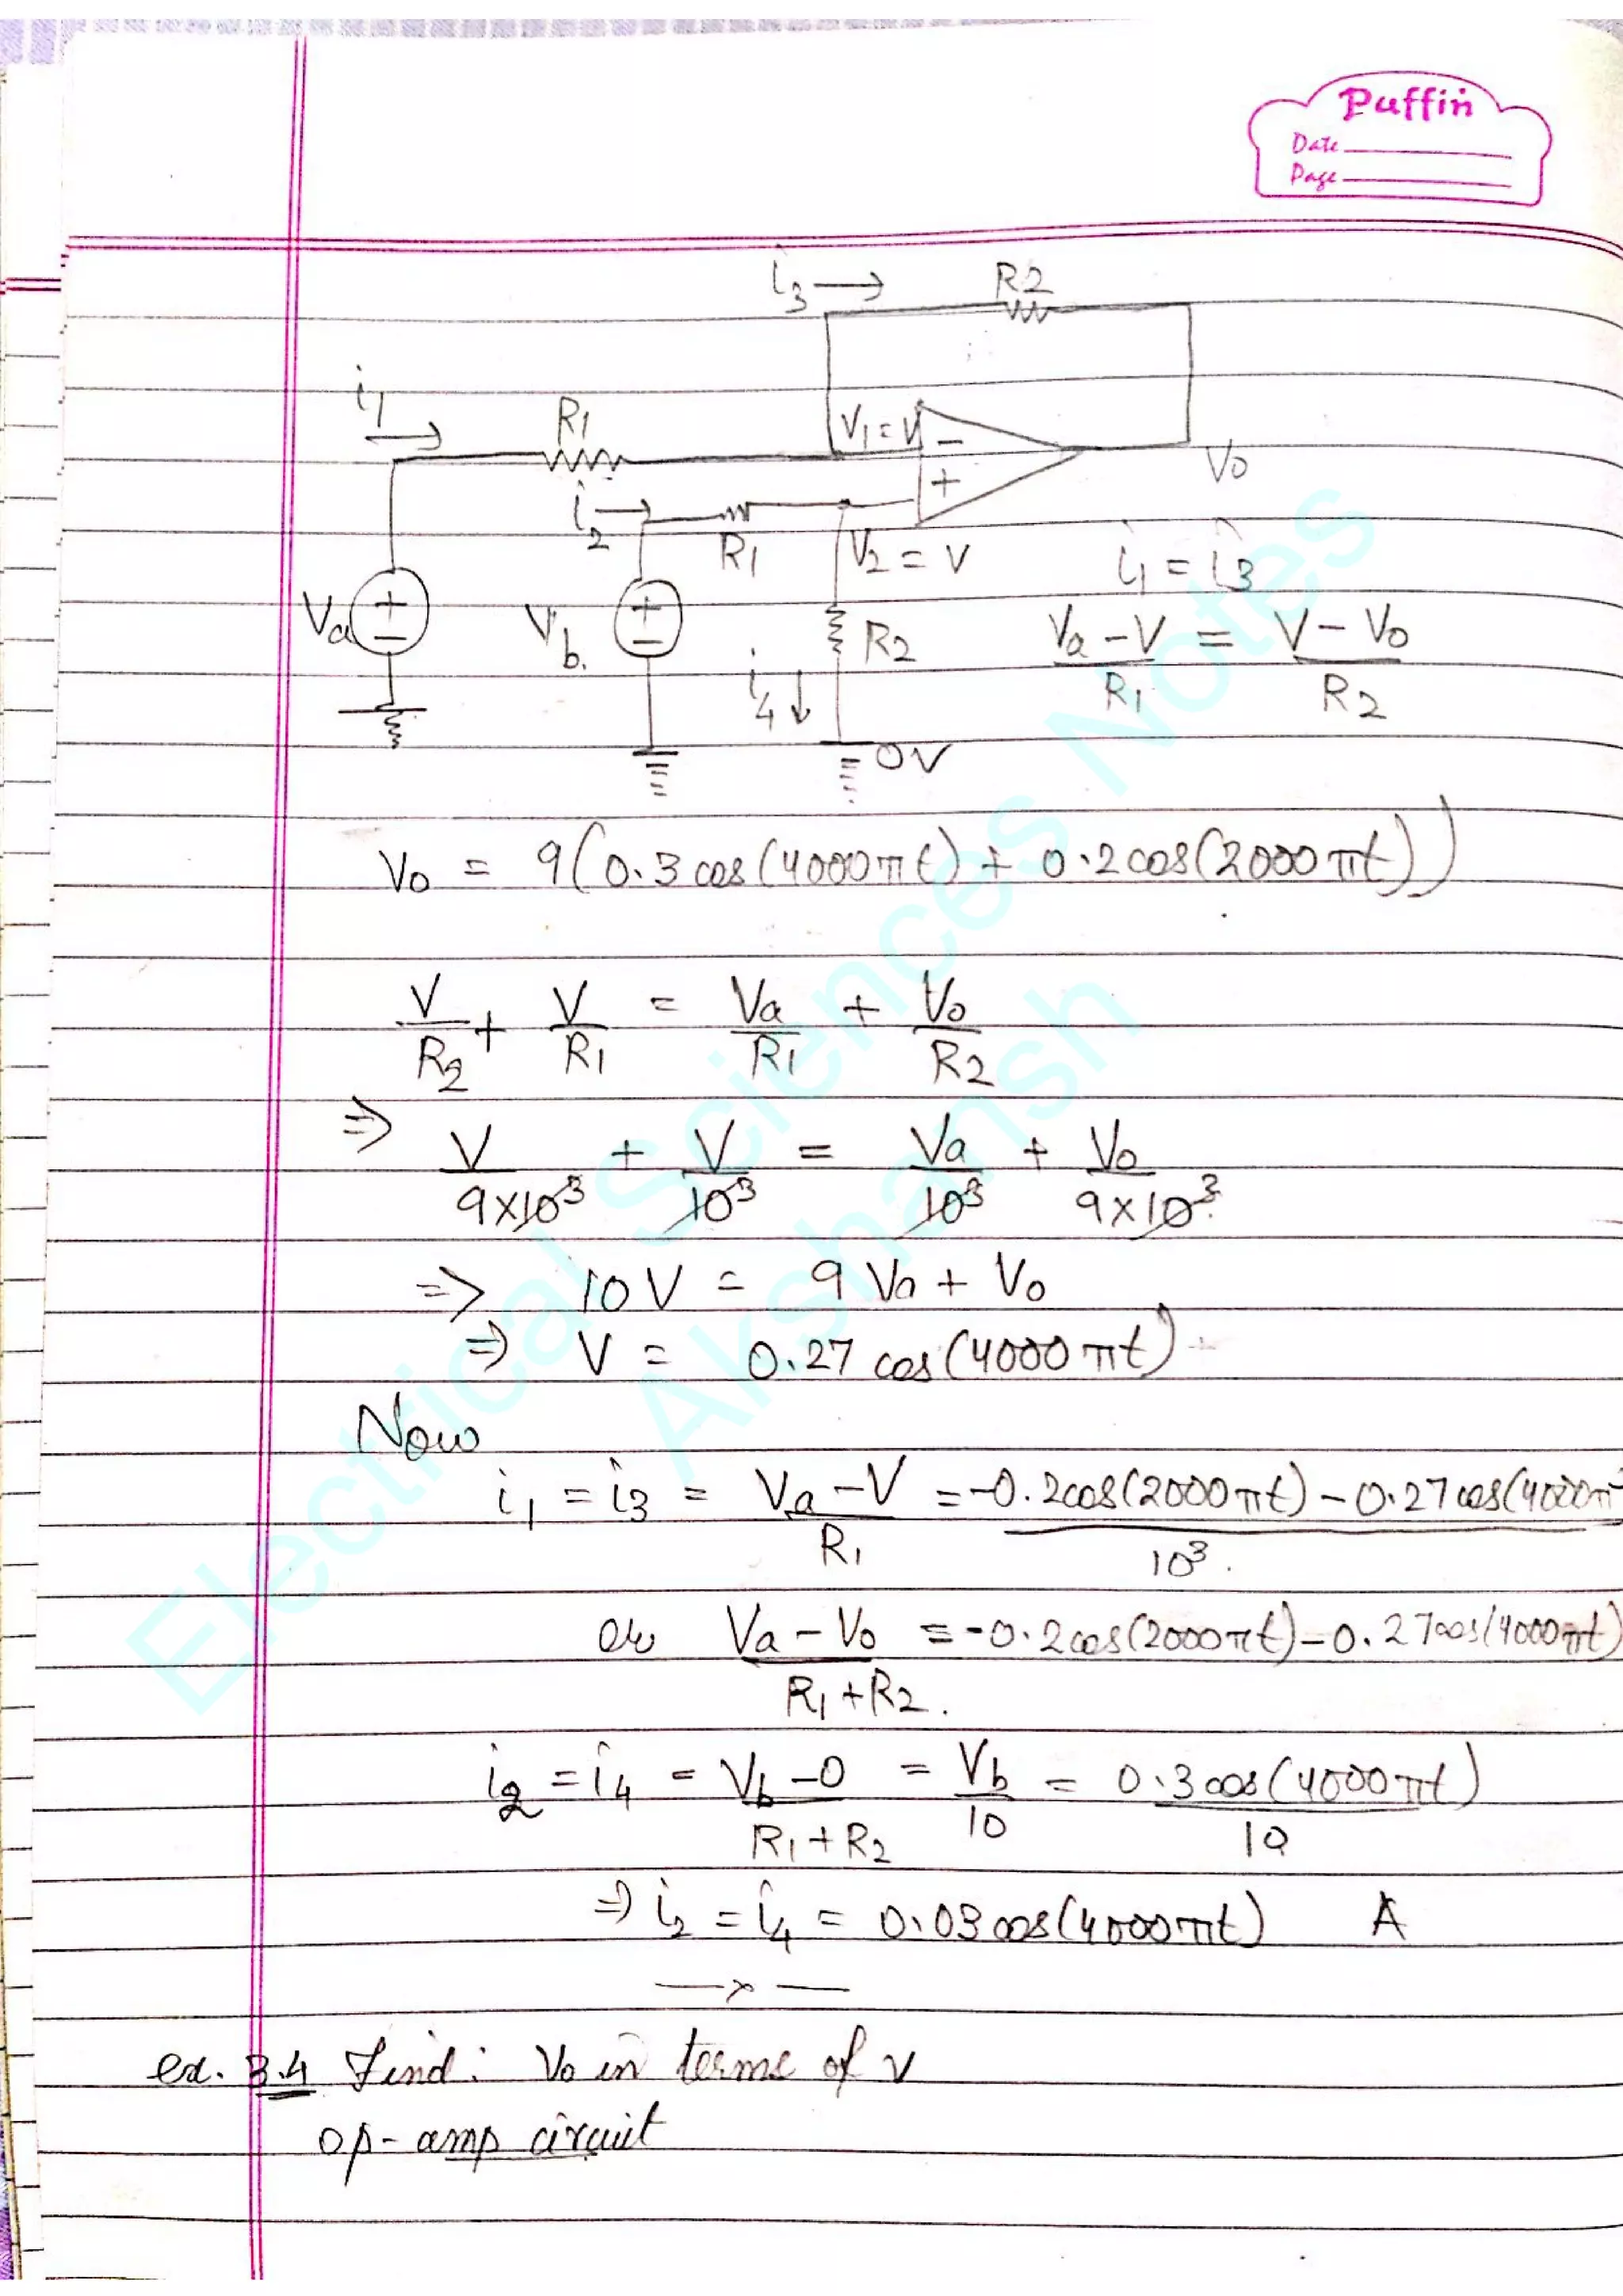 Puffin
Date
Page
i3 → R2
i1 → R1 V1 = V − Vo
+
i2 → R1 V2 = V i1 = i3
Va + − Vb. + − i4 ↓ R2 (Va − V)/R1 = (V − Vo)/R2
0V
Vo = 9(0.3 cos(4000πt) + 0.2cos(2000πt))
V/R2 + V/R1 = Va/R1 + Vo/R2
⇒ V/(9×10³) + V/10³ = Va/10³ + Vo/(9×10³)
⇒ 10V = 9Va + Vo
⇒ V = 0.27 cos(4000πt)
Now
i1 = i3 = (Va − V)/R1 = (−0.2cos(2000πt) − 0.27cos(4000π)/10³.
or (Va − Vo)/(R1 + R2). = −0.2cos(2000πt) − 0.27cos(4000πt)
i2 = i4 = (Vb − 0)/(R1 + R2) = Vb/10 = 0.3cos(4000πt)/10
⇒ i2 = i4 = 0.03cos(4000πt) A
—x—
ex. 3.4 Find: Vo in terms of v
op-amp circuit
Electrical Sciences Notes
Akshansh